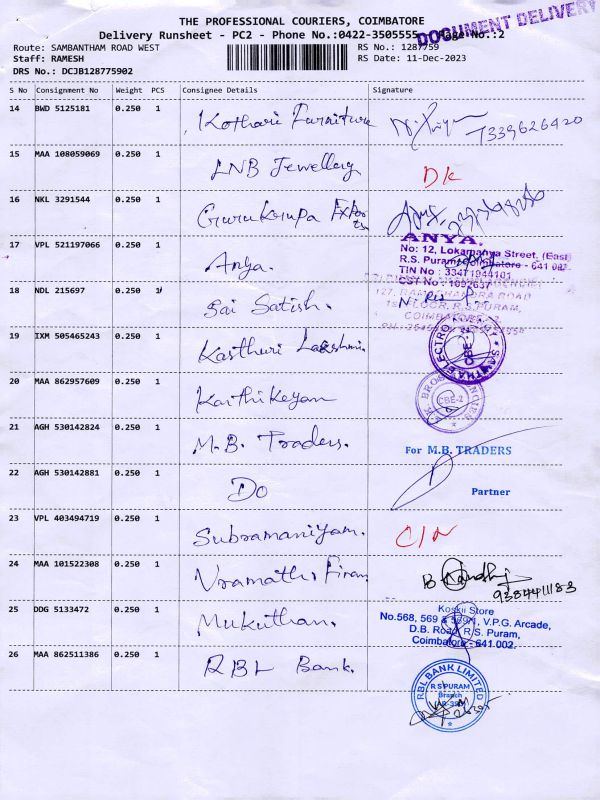 THE PROFESSIONAL COURIERS, COIMBATORE
DOCUMENT DELIVERY
Delivery Runsheet - PC2 - Phone No.:0422-3505555 Page No.:2
Route: SAMBANTHAM ROAD WEST RS No.: 1287759
Staff: RAMESH RS Date: 11-Dec-2023
DRS No.: DCJB128775902
S No Consignment No Weight PCS Consignee Details Signature
14 BWD 5125181 0.250 1 Kothari Furniture 7339626420
15 MAA 108059069 0.250 1 LNB Jewellery DK
16 NKL 3291544 0.250 1 Gurukrupa Exports
17 VPL 521197066 0.250 1 Anya.
ANYA.
No: 12, Lokamanya Street, (East)
R.S. Puram, Coimbatore - 641 002.
TIN No : 33471944101
CST No : 1092637
18 NDL 215697 1 Sai Satish.
127, RAMACHANDRA ROAD
1st FLOOR, R.S. PURAM,
COIMBATORE-2.
19 IXM 505465243 0.250 1 Kasthuri Lakshmi.
CBE-2
20 MAA 862957609 0.250 1 Karthikeyan
CBE-2
21 AGH 530142824 0.250 1 M.B. Traders.
For M.B. TRADERS
22 AGH 530142881 0.250 1 Do
Partner
23 VPL 403494719 0.250 1 Subramaniyam. C/N
24 MAA 101522308 0.250 1
9384411183
25 DDG 5133472 0.250 1 Mukuthan.
Koskii Store
No.568, 569 & 569/1, V.P.G. Arcade,
D.B. Road, R.S. Puram,
Coimbatore - 641 002.
26 MAA 862511386 0.250 1 RBL Bank.
RBL BANK LIMITED
R S PURAM
Branch